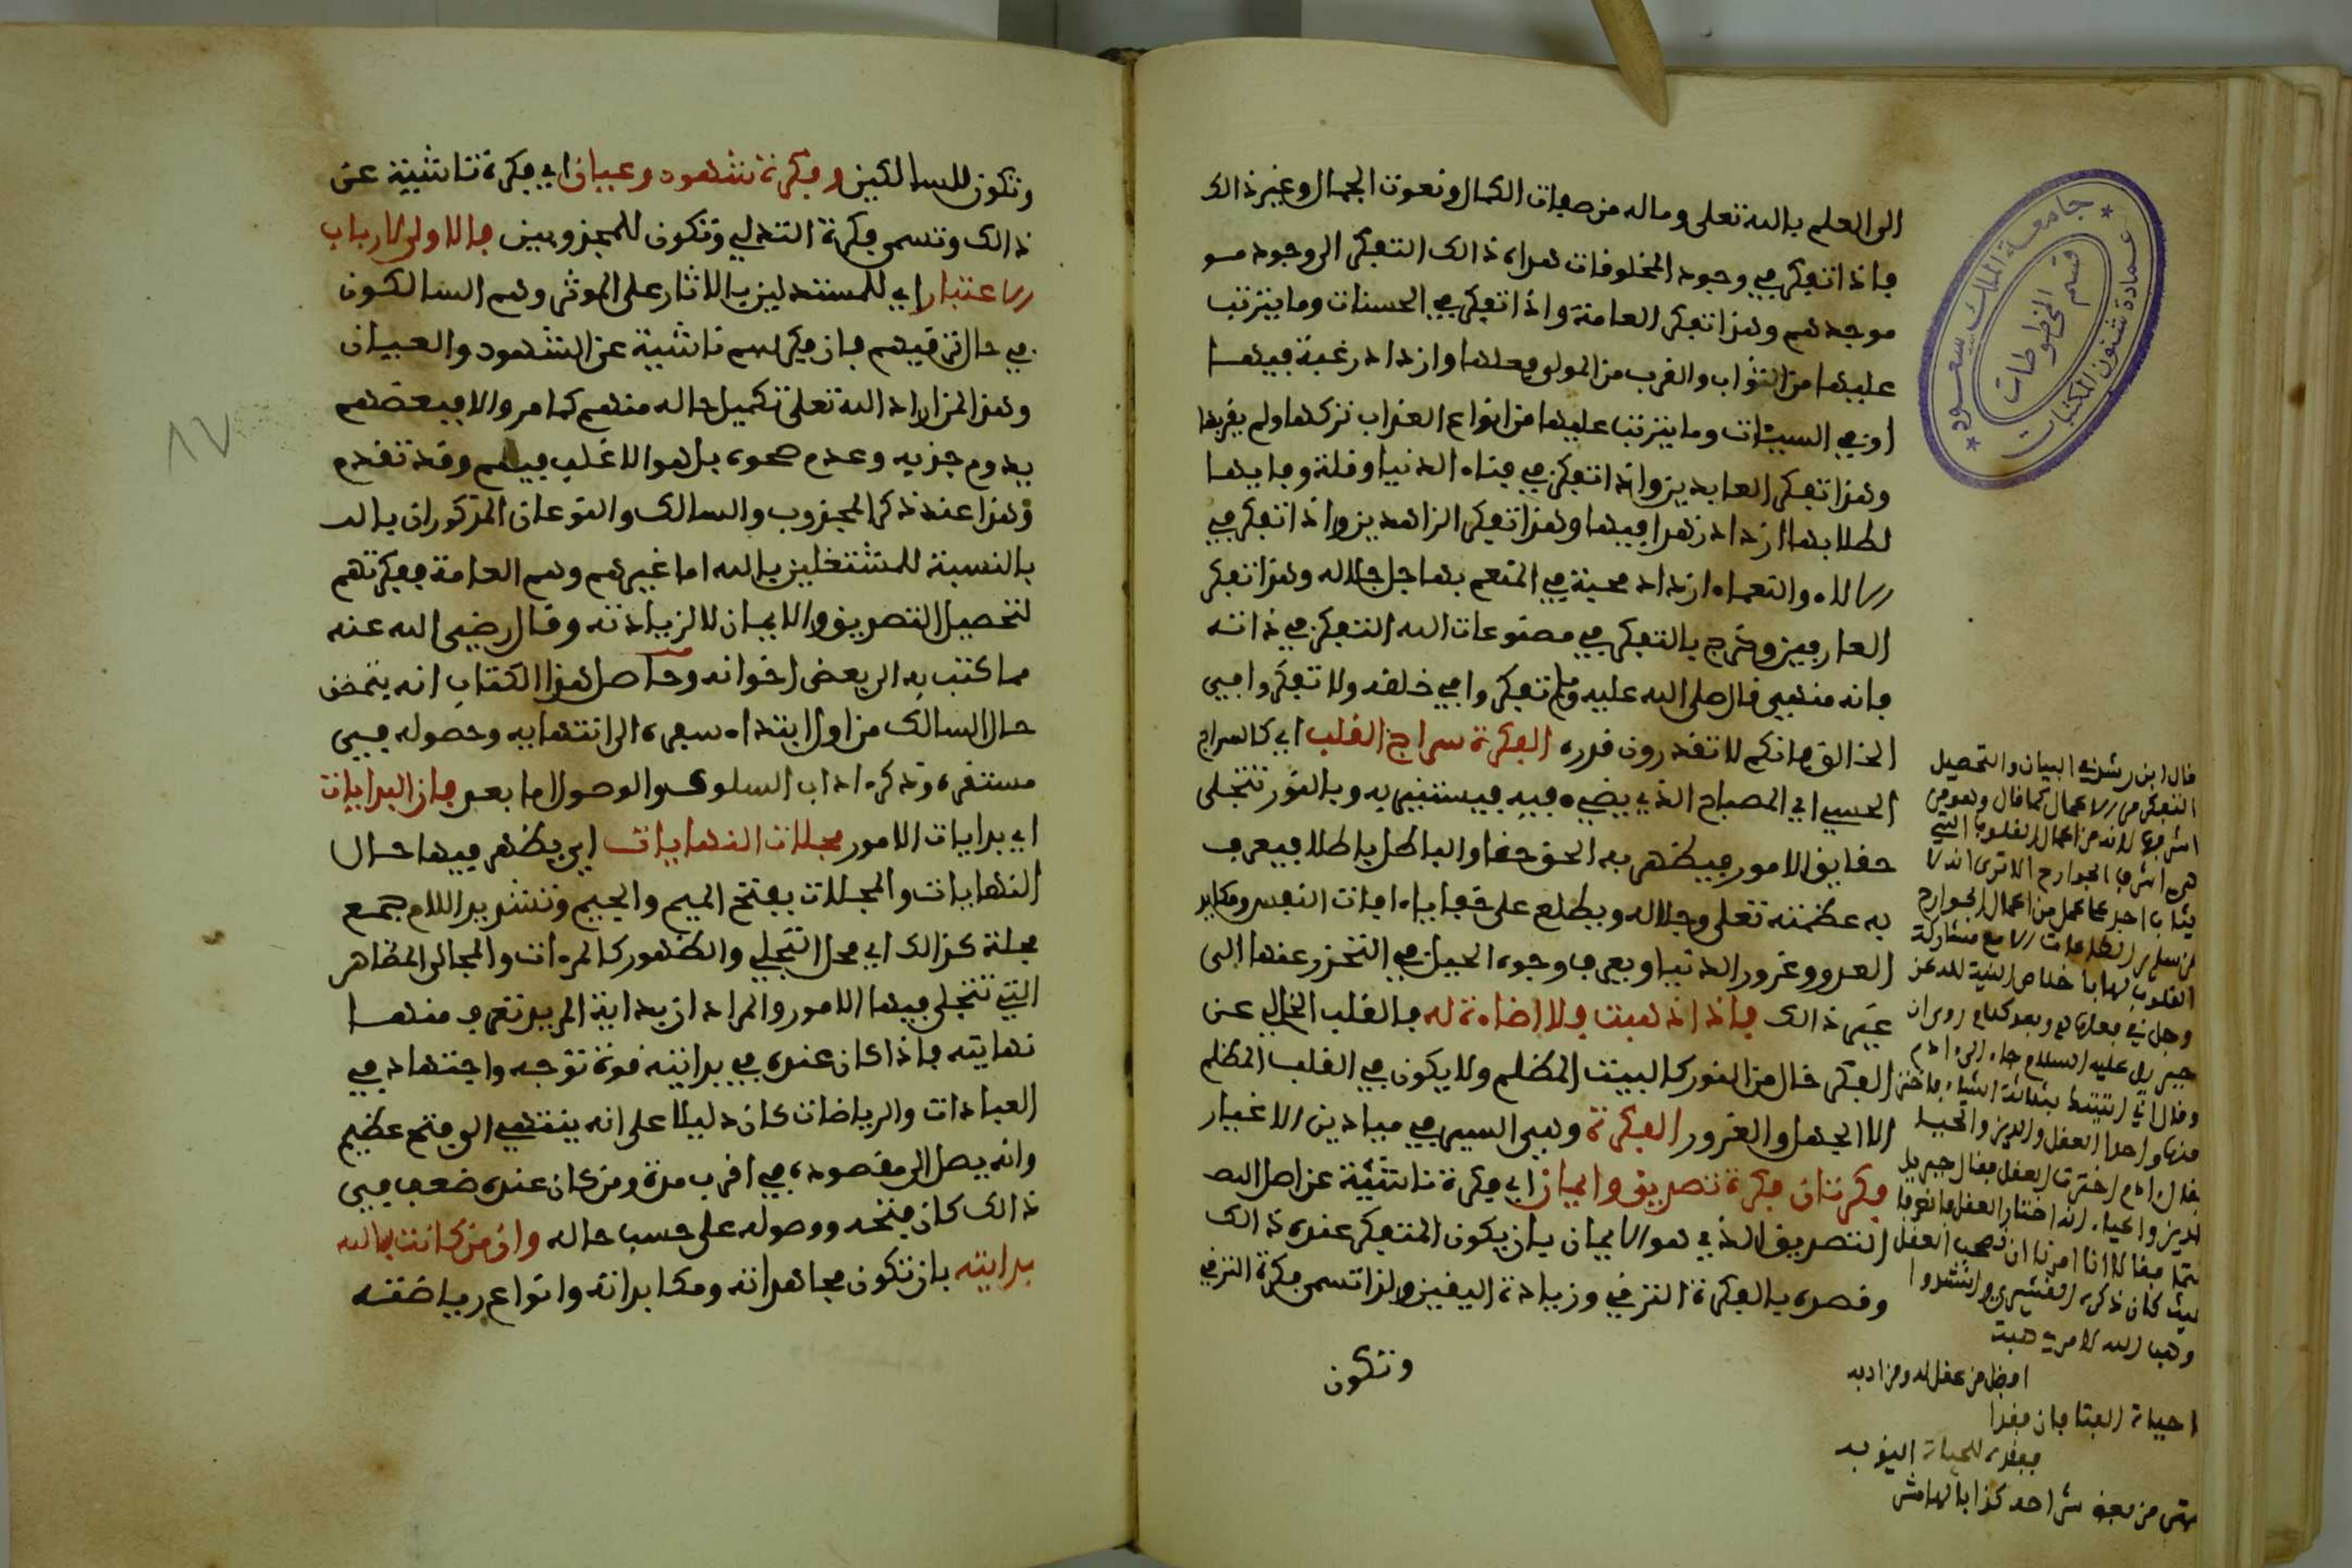 الى العلم بالله تعلى وماله من صفات الكمال ونعوت الجمال وغير ذالك
فاذا تفكر في وجود المخلوفات هداه ذالك التفكر الى وجود مو
موجدهم وهذا تفكر العامة واذا تفكر في الحسنات وما يترتب
عليها من الثواب والفرب من المولى فعلها وازداد رغبة فيها
او في السيئات وما يترتب عليها من انواع العذاب تركها ولم يفربها
وهذا تفكر العابدين واذا تفكر في فناء الدنيا وفلة وفايها
لطلابها ازداد زهدا فيها وهذا تفكر الزاهدين واذا تفكر في
الالاء والنعماء ازداد محبة في المنعم بها جل جلاله وهذا تفكر
العارفين وخرج بالتفكر في مصنوعات الله التفكر في ذاته
فانه منهي فال صلى الله عليه وسلم تفكروا في خلفه ولا تفكروا في
الخالق فانكم لا تفدرون فدره الفكرة سراج الفلب اي كالسراج
الحسي اي المصباح الذي يضيء فيه فيستنير به وبالنور تتجلى
حفايق الامور فيظهر به الحق حفا والباطل باطلا فيعرف
به عظمته تعلى وجلاله ويطلع على خفايا ءافات النفس ومكايد
العدو وغرور الدنيا ويعرف وجوه الحيل في التحرز عنها الى
غير ذالك فاذا ذهبت فلا اضاءة له فالفلب الخالي عن
الفكر خال من النور كالبيت المظلم ولا يكون في الفلب المظلم
الا الجهل والغرور الفكرة وهي السير في ميادين الاغيار
فكرتان فكرة تصديق وايمان اي فكرة ناشئة عن اصل التصـ
التصديق الذي هو الايمان بان يكون المتفكر عنده ذالك
وفصده بالفكرة الترفي وزيادة اليفين ولذا تسمى فكرة الترفي
وتكون
فال ابن رشد في البيان والتحصيل
التفكر من الاعمال كما فال وهو من
اشرفها لانه من اعمال القلوب التي
هي اشرف الجوارح الا ترى انه لا
يثاب احد على عمل من اعمال الجوارح
من ساير الطاعات الا مع مشاركة
القلوب لها باخلاص النية لله عز
وجل في فعلها
جبريل عليه السلام جاء الى ءادم
وفال اني اتيتك بثلاثة اشياء فاختر
منها واحدا العقل والدين والحيا
فقال ءادم اخترت العقل فقال جبريل
وهب الله لامرئ هبة
افضل من عقله ومن ادبه
احياة الفتى فان فقدا
ففقده للحياة اليق به
وتكون للسالكين وفكرة شهود وعيان اي فكرة ناشئة عن
ذالك وتسمى فكرة التدلي وتكون للمجذوبين فالاولى لارباب
الاعتبار اي للمستدلين بالاثار على الموثر وهم السالكون
في حال ترفيهم فان فكرهم ناشئة عن الشهود والعيان
وهذا لمن اراد الله تعلى تكميل حاله منهم كما مر والا فبعضهم
يدوم جذبه وعدم صحوه بل هو الاغلب فيهم وفد تفدم
وهذا عند ذكر المجذوب والسالك والنوعان المذكوران بالنـ
بالنسبة للمشتغلين بالله اما غيرهم وهم العامة ففكرتهم
لتحصيل التصديق والايمان لا لزيادته وفال رضي الله عنه
مما كتب به الى بعض اخوانه وحاصل هذا الكتاب انه يتضمن
حال السالك من اول ابتداء سفره الى انتهايه وحصوله في
مستفره وذكر ءاداب السلوك والوصول اما بعد فان البدايات
اي بدايات الامور مجلات النهايات اي يظهر فيها حال
النهايات والمجلات بفتح الميم والجيم وتشديد اللام جمع
مجلة كذالك اي محل التجلي والظهور كالمرءات والمجالى المظاهر
التي تتجلى فيها الامور والمراد ان بداية المريد تعرف منها
نهايته فاذا كان عنده في بدايته فوة توجه واجتهاد في
العبادات والرياضات كان دليلا على انه ينتهي الى فتح عظيم
وانه يصل الى مفصوده في افرب مدة ومن كان عنده ضعف في
ذالك كان فتحه ووصوله على حسب حاله وان من كانت بالله
بدايته بان تكون مجاهداته ومكابداته وانواع رياضته
١٧
جامعة الملك سعود
عمادة شئون المكتبات
قسم المخطوطات